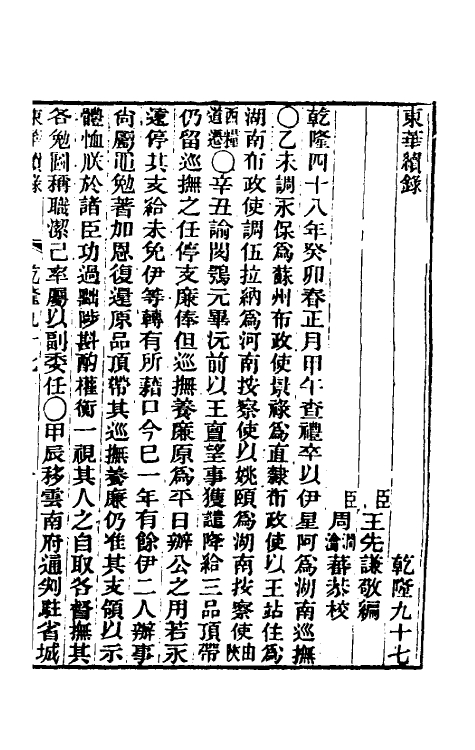 東華續錄
乾隆九十七
臣王先謙敬編
臣周潤蕃恭校
乾隆四十八年癸卯春正月甲午查禮卒以伊星阿爲湖南巡撫
○乙未調永保爲蘇州布政使景祿爲直隸布政使以王站住爲
湖南布政使調伍拉納爲河南按察使以姚頤爲湖南按察使由陝
西糧道遷○辛丑諭閔鶚元畢沅前以王亶望事獲譴降給三品頂帶
仍留巡撫之任停支廉俸但巡撫養廉原爲平日辦公之用若永
遠停其支給未免伊等轉有所藉口今已一年有餘伊二人辦事
尙屬黽勉著加恩復還原品頂帶其巡撫養廉仍准其支領以示
體恤朕於諸臣功過黜陟斟酌權衡一視其人之自取各督撫其
各勉圖稱職潔己率屬以副委任○甲辰移雲南府通判駐省城
東華續錄 乾隆九十七